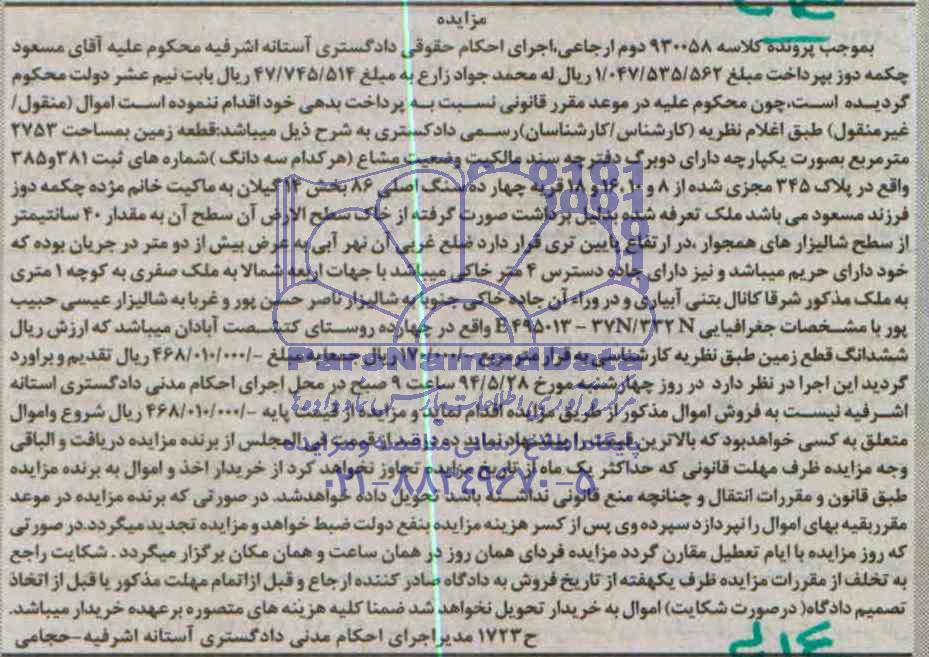 مزایده
بموجب پرونده کلاسه ۹۳۰۰۵۸ دوم ارجاعی،اجرای احکام حقوقی دادگستری آستانه اشرفیه محکوم علیه آقای مسعود
چکمه دوز بپرداخت مبلغ ۱/۰۴۷/۵۳۵/۵۶۲ ریال له محمد جواد زارع به مبلغ ۴۷/۷۴۵/۵۱۴ ریال بابت نیم عشر دولت محکوم
گردیده است،چون محکوم علیه در موعد مقرر قانونی نسبت به پرداخت بدهی خود اقدام ننموده است اموال (منقول/
غیرمنقول) طبق اعلام نظریه (کارشناس/کارشناسان)رسمی دادگستری به شرح ذیل میباشد:قطعه زمین بمساحت ۲۷۵۳
مترمربع بصورت یکپارچه دارای دوبرگ دفترچه سند مالکیت وضعیت مشاع (هرکدام سه دانگ )شماره های ثبت ۳۸۱و۳۸۵
واقع در پلاک ۳۴۵ مجزی شده از ۸ و ۱۰،۱۶ و ۱۸ قریه چهار ده سنگ اصلی ۸۶ بخش ۱۴ گیلان به ماکیت خانم مژده چکمه دوز
فرزند مسعود می باشد ملک تعرفه شده بدلیل برداشت صورت گرفته از خاک سطح الارض آن سطح آن به مقدار ۴۰ سانتیمتر
از سطح شالیزار های همجوار ،در ارتفاع پایین تری قرار دارد ضلع غربی آن نهر آبی به عرض بیش از دو متر در جریان بوده که
خود دارای حریم میباشد و نیز دارای جاده دسترس ۴ متر خاکی میباشد با جهات اربعه شمالا به ملک صفری به کوچه ۱ متری
به ملک مذکور شرقا کانال بتنی آبیاری و در وراء آن جاده خاکی جنوبا به شالیزار ناصر حسن پور و غربا به شالیزار عیسی حبیب
پور با مشخصات جغرافیایی E۴۹۵۰۱۳ - ۳۷N/۳۳۲ N واقع در چهارده روستای کتشصت آبادان میباشد که ارزش ریال
ششدانگ قطع زمین طبق نظریه کارشناسی به قرار مترمربع -/۱۷۰۰۰۰ ریال جمعا به مبلغ -/۴۶۸/۰۱۰/۰۰۰ ریال تقدیم و براورد
گردید این اجرا در نظر دارد در روز چهارشنبه مورخ ۹۴/۵/۲۸ ساعت ۹ صبح در محل اجرای احکام مدنی دادگستری استانه
اشرفیه نیست به فروش اموال مذکور از طریق مزایده اقدام نماید و مزایده از قیمت پایه -/۴۶۸/۰۱۰/۰۰۰ ریال شروع واموال
متعلق به کسی خواهدبود که بالاترین قیمت را پیشنهاد نماید ده درصد از قیمت فی المجلس از برنده مزایده دریافت و الباقی
وجه مزایده ظرف مهلت قانونی که حداکثر یک ماه از تاریخ مزایده تجاوز نخواهد کرد از خریدار اخذ و اموال به برنده مزایده
طبق قانون و مقررات انتقال و چنانچه منع قانونی نداشته باشد تحویل داده خواهدشد. در صورتی که برنده مزایده در موعد
مقرربقیه بهای اموال را نپردازد سپرده وی پس از کسر هزینه مزایده بنفع دولت ضبط خواهد و مزایده تجدید میگردد.در صورتی
که روز مزایده با ایام تعطیل مقارن گردد مزایده فردای همان روز در همان ساعت و همان مکان برگزار میگردد . شکایت راجع
به تخلف از مقررات مزایده ظرف یکهفته از تاریخ فروش به دادگاه صادر کننده ارجاع و قبل ازاتمام مهلت مذکور یا قبل از اتخاذ
تصمیم دادگاه( درصورت شکایت) اموال به خریدار تحویل نخواهد شد ضمنا کلیه هزینه های متصوره برعهده خریدار میباشد.
ح ۱۷۲۳ مدیر اجرای احکام مدنی دادگستری آستانه اشرفیه-حجامی
ParsNamadData
پایگاه اطلاع رسانی مناقصه و مزایده
۰۲۱-۸۸۳۴۹۶۷۰-۵